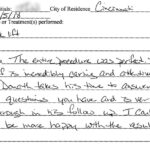 City of Residence: Cincinnati
/5/18
or Treatment(s) performed:
lift
The entire procedure was perfect
f is incredibly caring and attentive
Donath takes his time to answer
questions you have and is ver
orough in his follow up. I can't
be more happy with the result